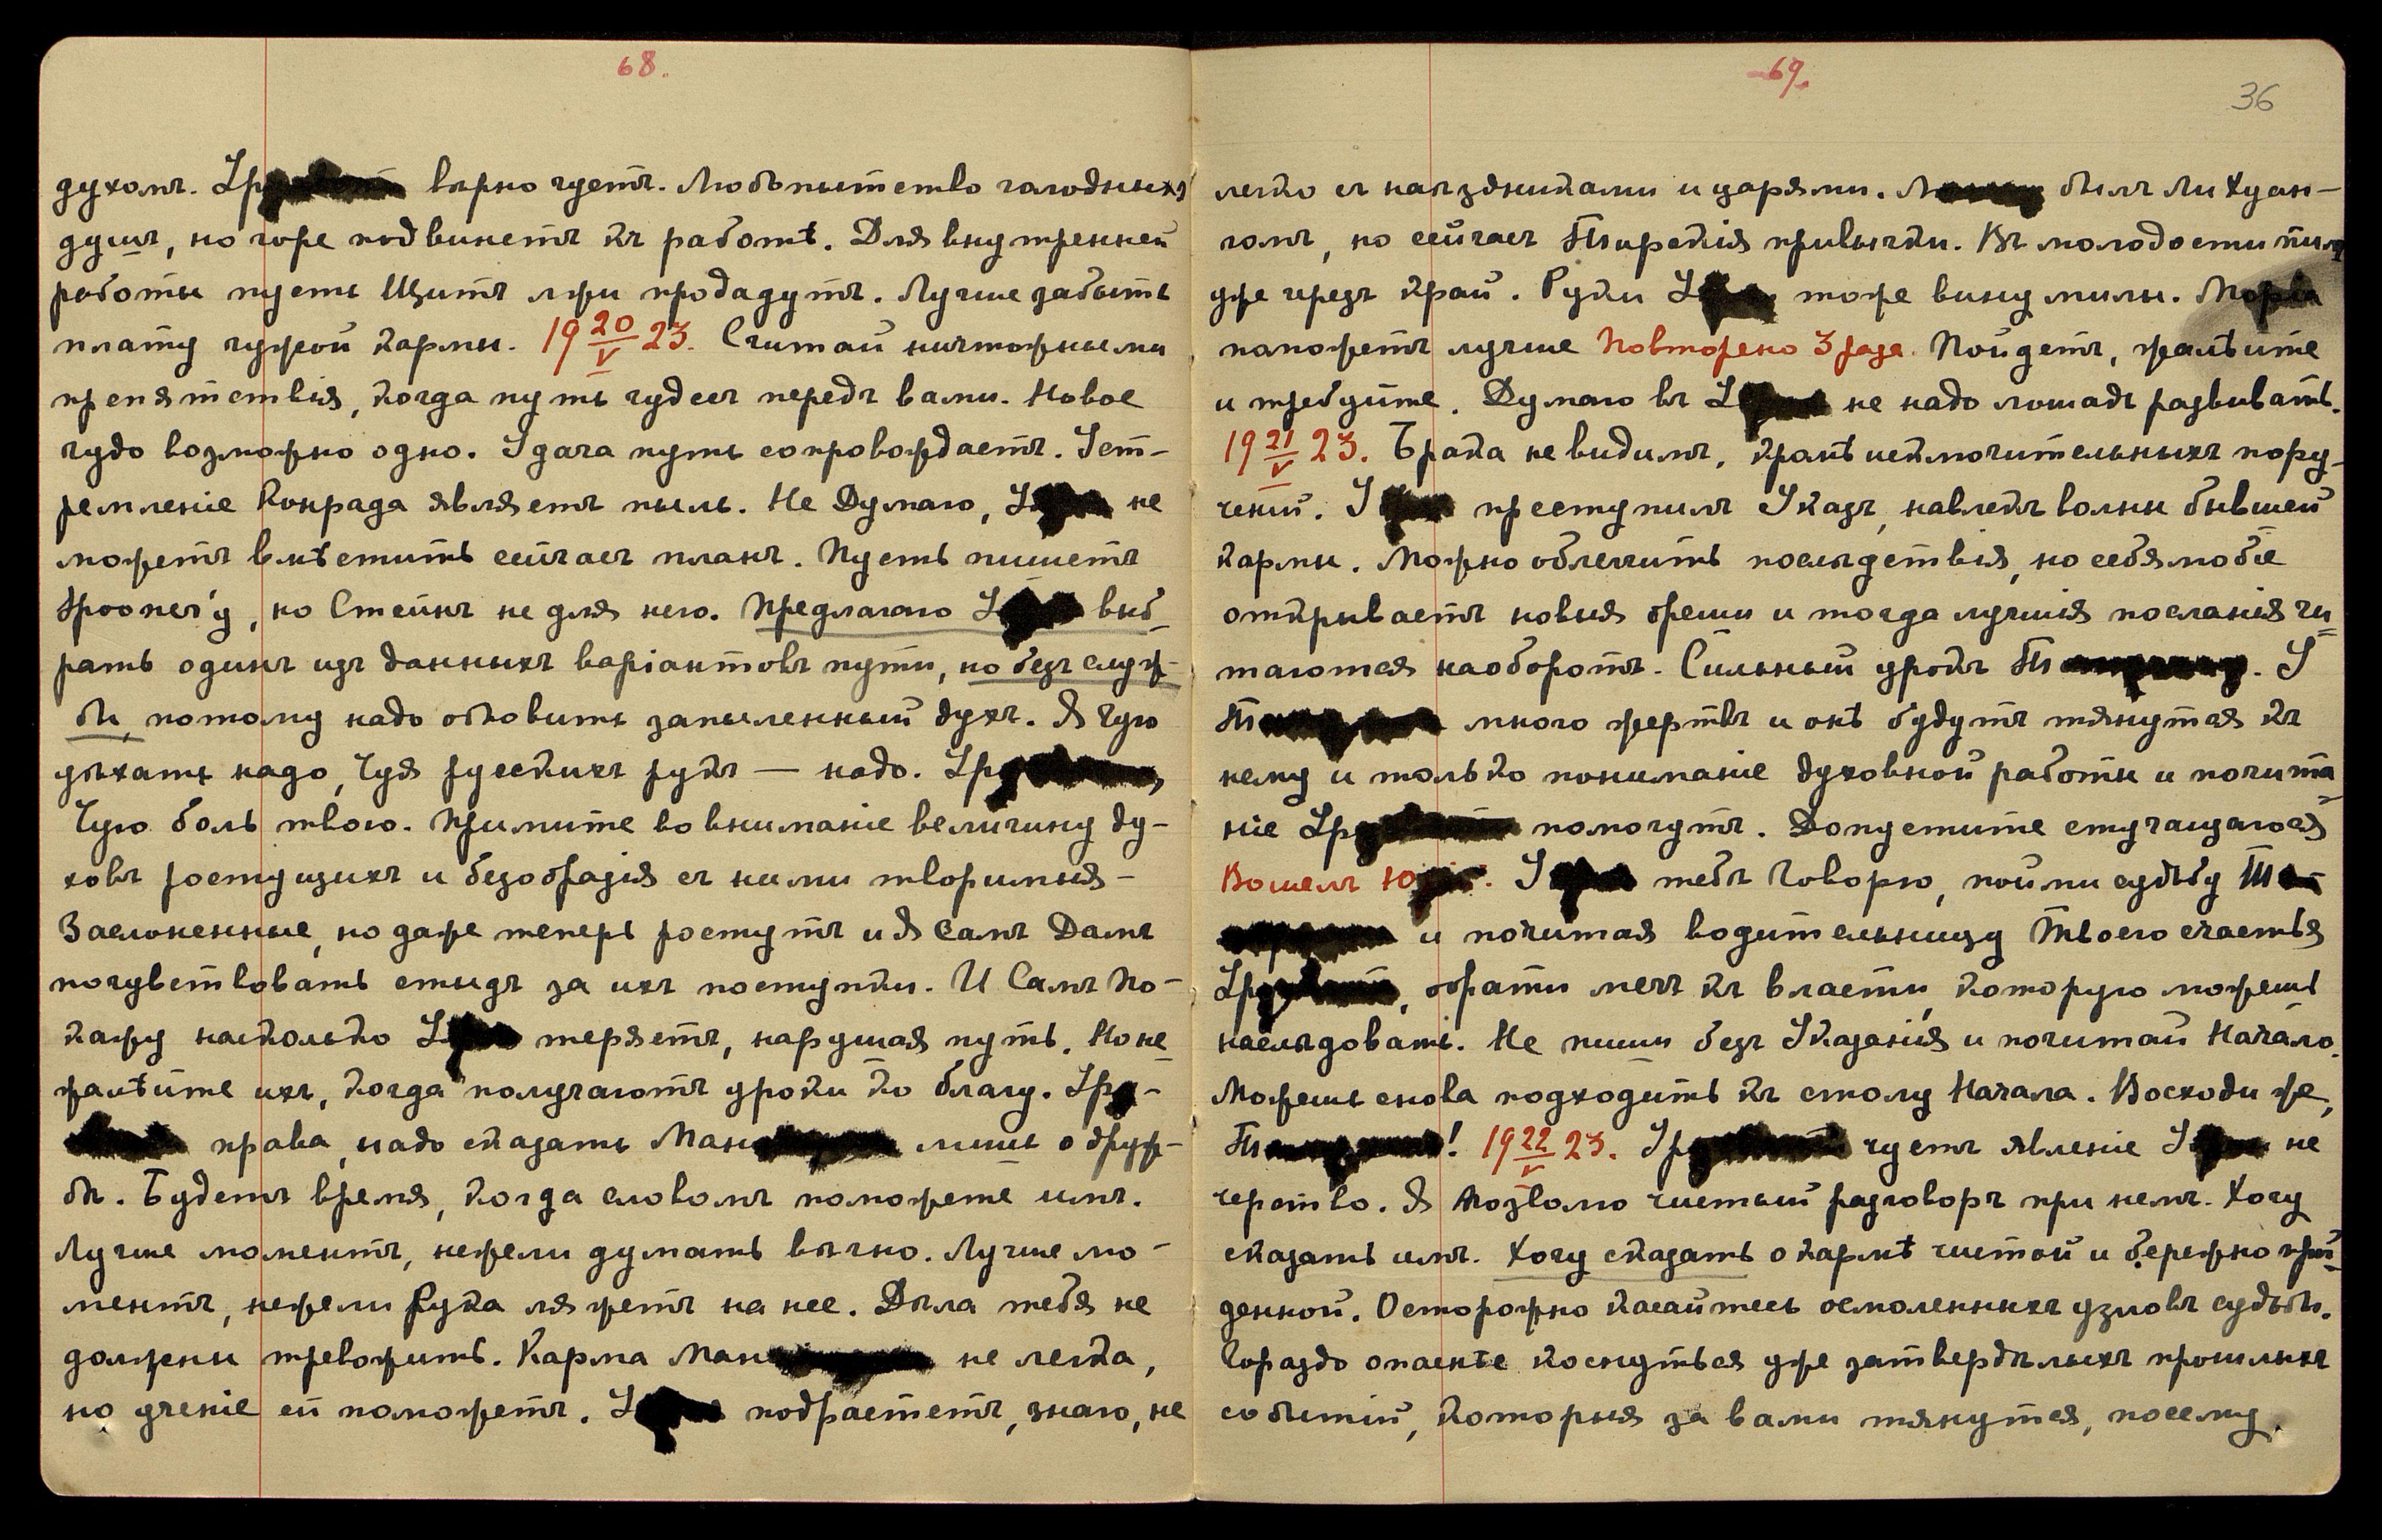 68.
духомъ. Ур вѣрно чуетъ. Любопытство голодныхъ
душъ, но горе подвинетъ къ работѣ. Для внутренней
работы пусть Щитъ лжи продадутъ. Лучше забыть
плату чужой кармы. 19 20/V 23. Считай ничтожными
препятствія, когда путь чудесъ передъ вами. Новое
чудо возможно одно. Удача путь сопровождаетъ. Уст-
ремленіе Конрада являетъ пыль. Не Думаю, У не
можетъ вмѣстить сейчасъ планъ. Пусть пишетъ
Spooner'у, но Стейнъ не для него. Предлагаю У выб-
рать одинъ изъ данныхъ варіантовъ пути, но безъ служ-
бы, потому надо обновить запыленный духъ. Я Чую
уѣхать надо, Чуя русскихъ рукъ — надо. Ур,
Чую боль твою. Примите во вниманіе величину ду-
ховъ ростущихъ и безобразія съ ними творимыя -
Заслоненные, но даже теперь ростутъ и Я Самъ Дамъ
почувствовать стыдъ за ихъ поступки. И Самъ По-
кажу насколько У теряетъ, нарушая путь. Но не
жалѣйте ихъ, когда получаютъ уроки ко благу. Уру-
права, надо сказать Ман лишь о друж-
бѣ. Будетъ время, когда словомъ поможете имъ.
Лучше моментъ, нежели думать вѣчно. Лучше мо-
ментъ, нежели Рука ляжетъ на нее. Дѣла тебя не
должны тревожить. Карма Ман не легка,
но ученіе ей поможетъ. У подрастетъ, знаю, не
69.
36
легко съ наѣздниками и царями. Л былъ Ли Хуан-
гомъ, но сейчасъ Тирскія привычки. Въ молодости пилъ
уже черезъ край. Руки У тоже вину милы. Морiа
поможетъ лучше Повторено 3 раза. Пойдетъ, жалѣйте
и требуйте. Думаю въ L не надо лошадь развивать.
19 21/V 23. Брака не видимъ, кромѣ исключительныхъ пору-
ченій. У преступилъ Указъ, навлекъ волны бывшей
кармы. Можно облегчить послѣдствія, но себялюбіе
открываетъ новыя бреши и тогда лучшія посланія чи-
таются наоборотъ. Сильный урокъ Т. У
Т много жертвъ и онѣ будутъ тянутся къ
нему и только пониманіе духовной работы и почита-
ніе Ур помогутъ. Допустите стучащагося
Вошелъ Ю. У тебѣ Говорю, пойми судьбу Т
и почитая водительницу Твоего счастья
Ур, обрати мечъ къ власти, которую можешь
наслѣдовать. Не пиши безъ Указанія и почитай Начало.
Можешь снова подходить къ столу Начала. Восходи же,
Т! 19 22/V 23. Ур чуетъ явленіе У не
черство. Я Позволю чистый разговоръ при немъ. Хочу
сказать имъ. Хочу сказать о кармѣ чистой и бережно прой-
денной. Осторожно касайтесь осмоленныхъ узловъ судьбы.
Гораздо опаснѣе коснуться уже затвердѣлыхъ прошлыхъ
событій, которыя за вами тянутся, посему